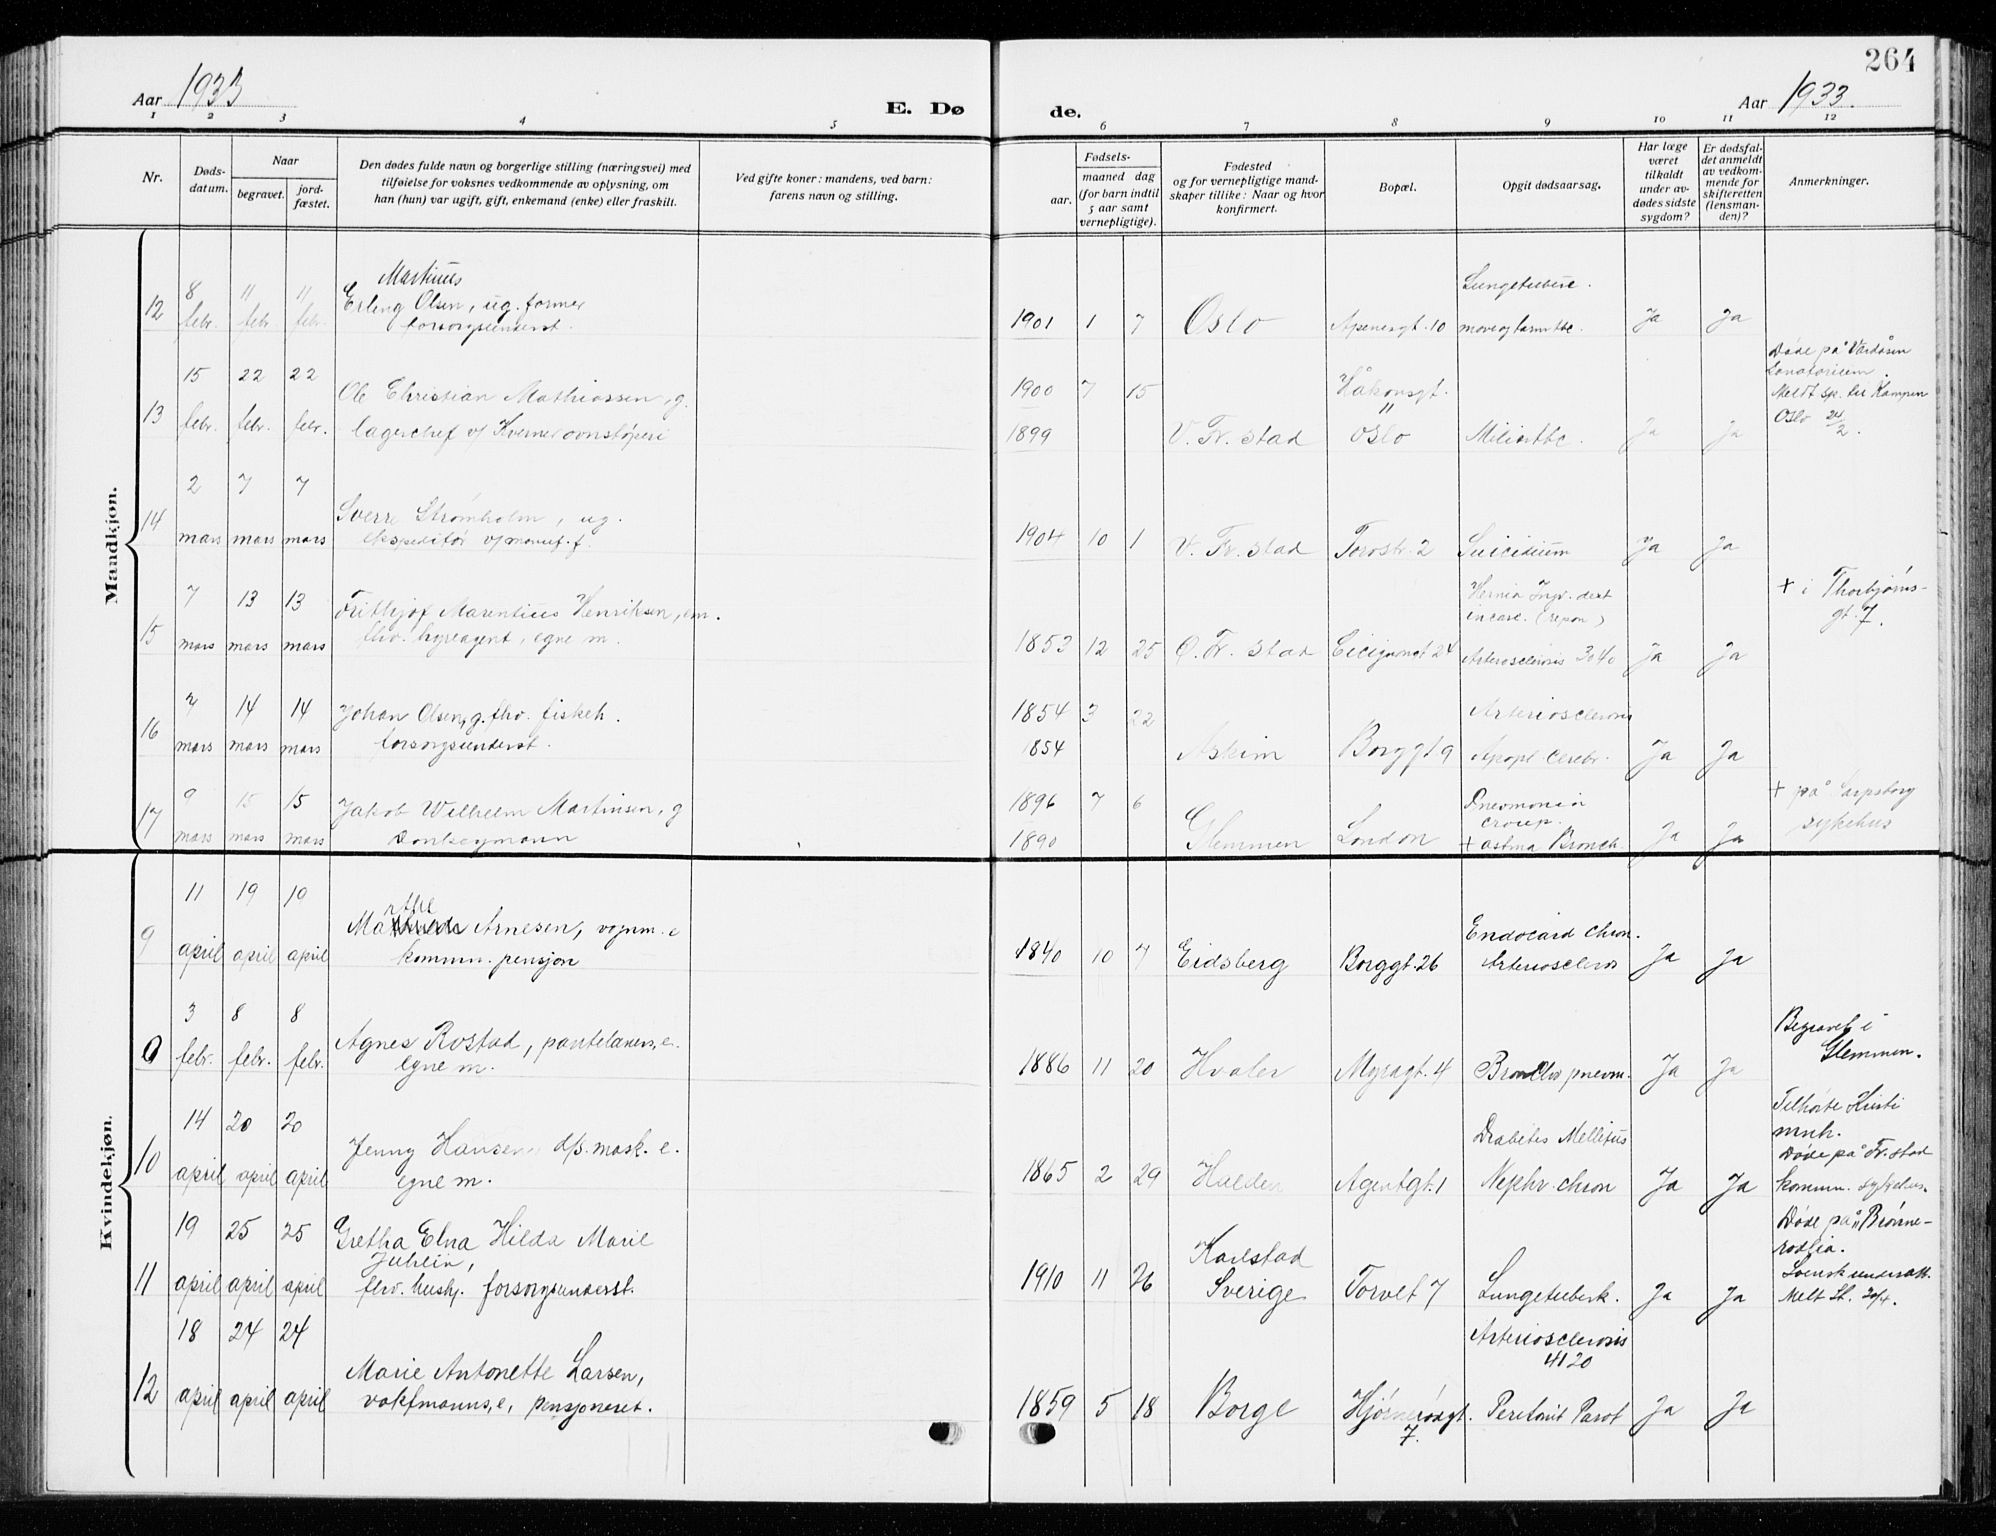 264
Aar 1933
E. Dø
de.
Aar 1933.
1 2 3 4 5 6 7 8 9 10 11 12
Nr.
Døds-
datum.
Naar
begravet.
jord-
fæstet.
Den dødes fulde navn og borgerlige stilling (næringsvei) med
tilføielse for voksnes vedkommende av oplysning, om
han (hun) var ugift, gift, enkemand (enke) eller fraskilt.
Ved gifte koner: mandens, ved barn:
farens navn og stilling.
Fødsels-
aar.
maaned dag
(for barn indtil
5 aar samt
vernepligtige).
Fødested
og for vernepligtige mand-
skaper tillike: Naar og hvor
konfirmert.
Bopæl.
Opgit dødsaarsag.
Har læge
været
tilkaldt
under av-
dødes sidste
sygdom?
Er dødsfal-
det anmeldt
av vedkom-
mende for
skifteretten
(lensman-
den)?
Anmerkninger.
Mandkjøn.
12
8 11 11
febr. febr. febr.
Martinus
Erling Olsen, ug. former
forsorgsunderst.
1901 1 7 Oslo Apenesgt. 10
Ja Ja
13
15 22 22
febr. febr. febr.
Ole Christian Mathiassen, g.
lagerchef v/ Kværner ovnstøperi
1900 7 15
1899
V. Fr. stad
Håkonsgt.
"
Oslo
Miliærtbc.
Ja Ja
Døde på Vardåsen
Sanatorium.
Meldt sp. til Kampen
Oslo 24/2.
14
2 7 7
mars mars mars
Sverre Strømholm, ug.
ekspeditør v/ manuf. f.
1904 10 1 V. Fr. stad Torvstr. 2 Suicidium Ja Ja
15
7 13 13
mars mars mars
Frithjof Marentius Henriksen, em.
fhv. hyreagent, egne m.
1853 12 25 Ø. Fr. stad Ja Ja
Hernia Ingv. dext
incarc. (repon)
Arteriosclerosis
+ i Thorbjørns-
gt. 7.
16
7 14 14
mars mars mars
Johan Olsen, g. fhv. fiskeh.
forsorgsunderst.
1854 3 22
1854
Askim Borggt 9
Arteriosclerosis
Apopl. cerebr.
Ja Ja
17
9 15 15
mars mars mars
Jakob Wilhelm Martinsen, g
Donkeymann
1896 7 6
1890
Glemmen London
Pneumonia
croup.
+ astma Bronch.
Ja Ja
+ på Sarpsborg
sykehus
Kvindekjøn.
9
11 19 19
april april april
Marthe Arnesen, vognm. e
komm. pensjon
1840 10 7 Eidsberg Borggt. 26
Endocard chron.
Arteriosclerosis
Ja Ja
0
3 8 8
febr. febr. febr.
Agnes Rostad, pantelåners, e.
egne m.
1886 11 20 Hvaler Myragt. 4 Bronchopneum. Ja Ja
Begravet i
Glemmen.
10
14 20 20
april april april
Jenny Hansen d/s. mask. e.
egne m.
1865 2 29 Halden Agentgt. 1
Diabetes Mellitus
Nephr. chron
Ja Ja
Tilhørte Kristi
mnh.
Døde på Fr. stad
komm. sykehus.
11
19 25 25
april april april
Gretha Elna Hilda Marie
Juhlin,
fhv. hushj. forsorgsunderst.
1910 11 26
Karlstad
Sverige
Torvet 7 Lungetuberk. Ja Ja
Døde på "Brønne-
rødlia.
Svensk undersått.
Melt St. 20/4.
12
18 24 24
april april april
Marie Antonette Larsen,
vaktmanns, e, pensjoneret.
1859 5 18 Borge
7.
Arteriosclerosis
4120
Ja Ja